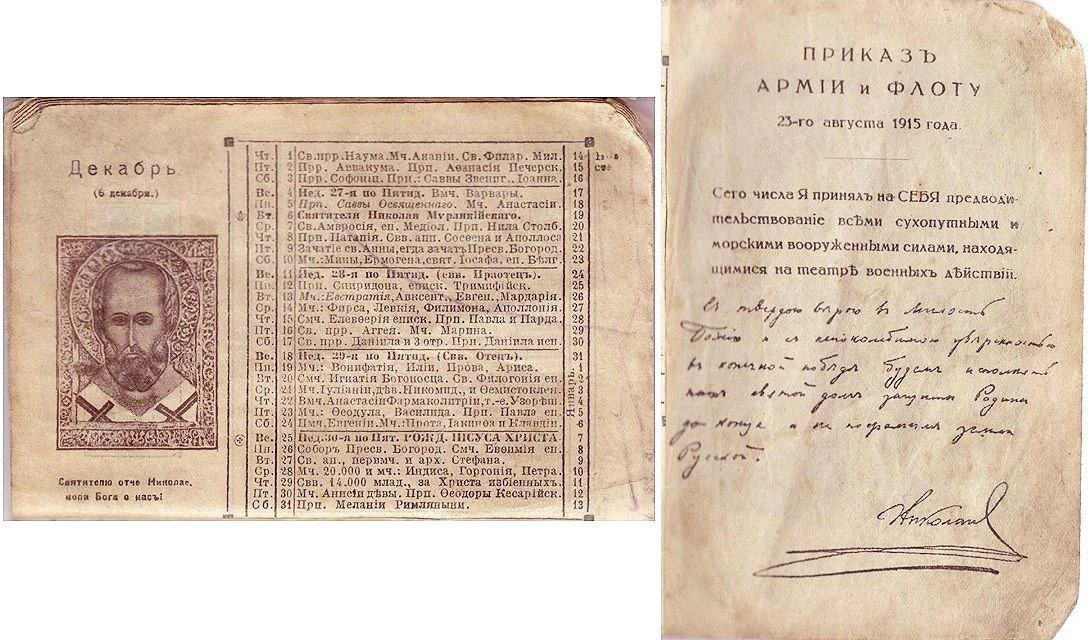 Декабрь.
(6 декабря.)
Святителю отче Николае,
моли Бога о насъ!
Чт. 1 Св.прр.Наума.Мч.Ананіи. Св. Филар. Мил. 14
Пт. 2 Прр. Аввакума. Прп. Аѳанасія Печерск. 15
Сб. 3 Прр. Софоніи. Прп.: Саввы Звениг., Іоанна. 16
Вс. 4 Нед. 27-я по Пятид. Вмч. Варвары. 17
Пн. 5 Прп. Саввы Освященнаго. Мч. Анастасіи. 18
Вт. 6 Святителя Николая Мурликійскаго. 19
Ср. 7 Св.Амвросія, еп. Медіол. Прп. Нила Столб. 20
Чт. 8 Прп. Патапія. Свв. апп. Сосѳена и Аполлоса 21
Пт. 9 Зачатіе св.Анны,егда зачатъ Пресв.Богород. 22
Сб. 10 Мч.:Мины,Ермогена,свят. Іосафа, еп. Бѣлг. 23
Вс. 11 Нед. 28-я по Пятид. (свв. Праотецъ). 24
Пн. 12 Прп. Спиридона, еписк. Тримифійск. 25
Вт. 13 Мч.:Евстратія,Авксент., Евген., Мардарія. 26
Ср. 14 Мч.: Фирса, Левкія, Филимона, Аполлонія. 27
Чт. 15 Смч. Елевѳерія еписк. Прп. Павла и Парда. 28
Пт. 16 Св. прр. Аггея. Мч. Марина. 29
Сб. 17 Св. прр. Даніила и 3 отр. Прп. Даніила исп. 30
Вс. 18 Нед. 29-я по Пятид. (Свв. Отецъ). 31
Пн. 19 Мч.: Вонифатія, Иліи, Прова, Ариса. 1
Вт. 20 Смч. Игнатія Богоносца. Св. Филогонія еп. 2
Ср. 21 Мч.:Іуліаніи,дѣв.Никомид., и Ѳемистоклея. 3
Чт. 22 Вмч.АнастасіиФармаколитріи,т.-е.Узорѣш. 4
Пт. 23 Мч.: Ѳеодула, Василида. Прп. Павла еп. 5
Сб. 24 Пмч.Евгеніи.Мч.:Прота, Іакинѳа и Клавдіи. 6
Вс. 25 Нед.30-я по Пят. РОЖД. ІИСУСА ХРИСТА 7
Пн. 26 Соборъ Пресв. Богород. Смч. Евѳимія еп. 8
Вт. 27 Св. ап., первмч. и арх. Стефана. 9
Ср. 28 Мч. 20.000 и мч.: Индиса, Горгонія, Петра. 10
Чт. 29 Свв. 14.000 млад., за Христа избіенныхъ. 11
Пт. 30 Мч. Анисіи дѣвы. Прп. Ѳеодоры Кесарійск. 12
Сб. 31 Прп. Меланіи Римляныни. 13
Январь.
ПРИКАЗЪ
АРМІИ и ФЛОТУ
23-го августа 1915 года.
Сего числа Я принялъ на СЕБЯ предводи-
тельствованіе всѣми сухопутными и
морскими вооруженными силами, находя-
щимися на театрѣ военныхъ дѣйствій.
Съ твердою вѣрою въ милость
Божію и съ непоколебимою увѣренностью
въ конечной побѣдѣ будемъ исполнять
нашъ святой долгъ защиты Родины
до конца и не посрамимъ земли
Русской.
Николай